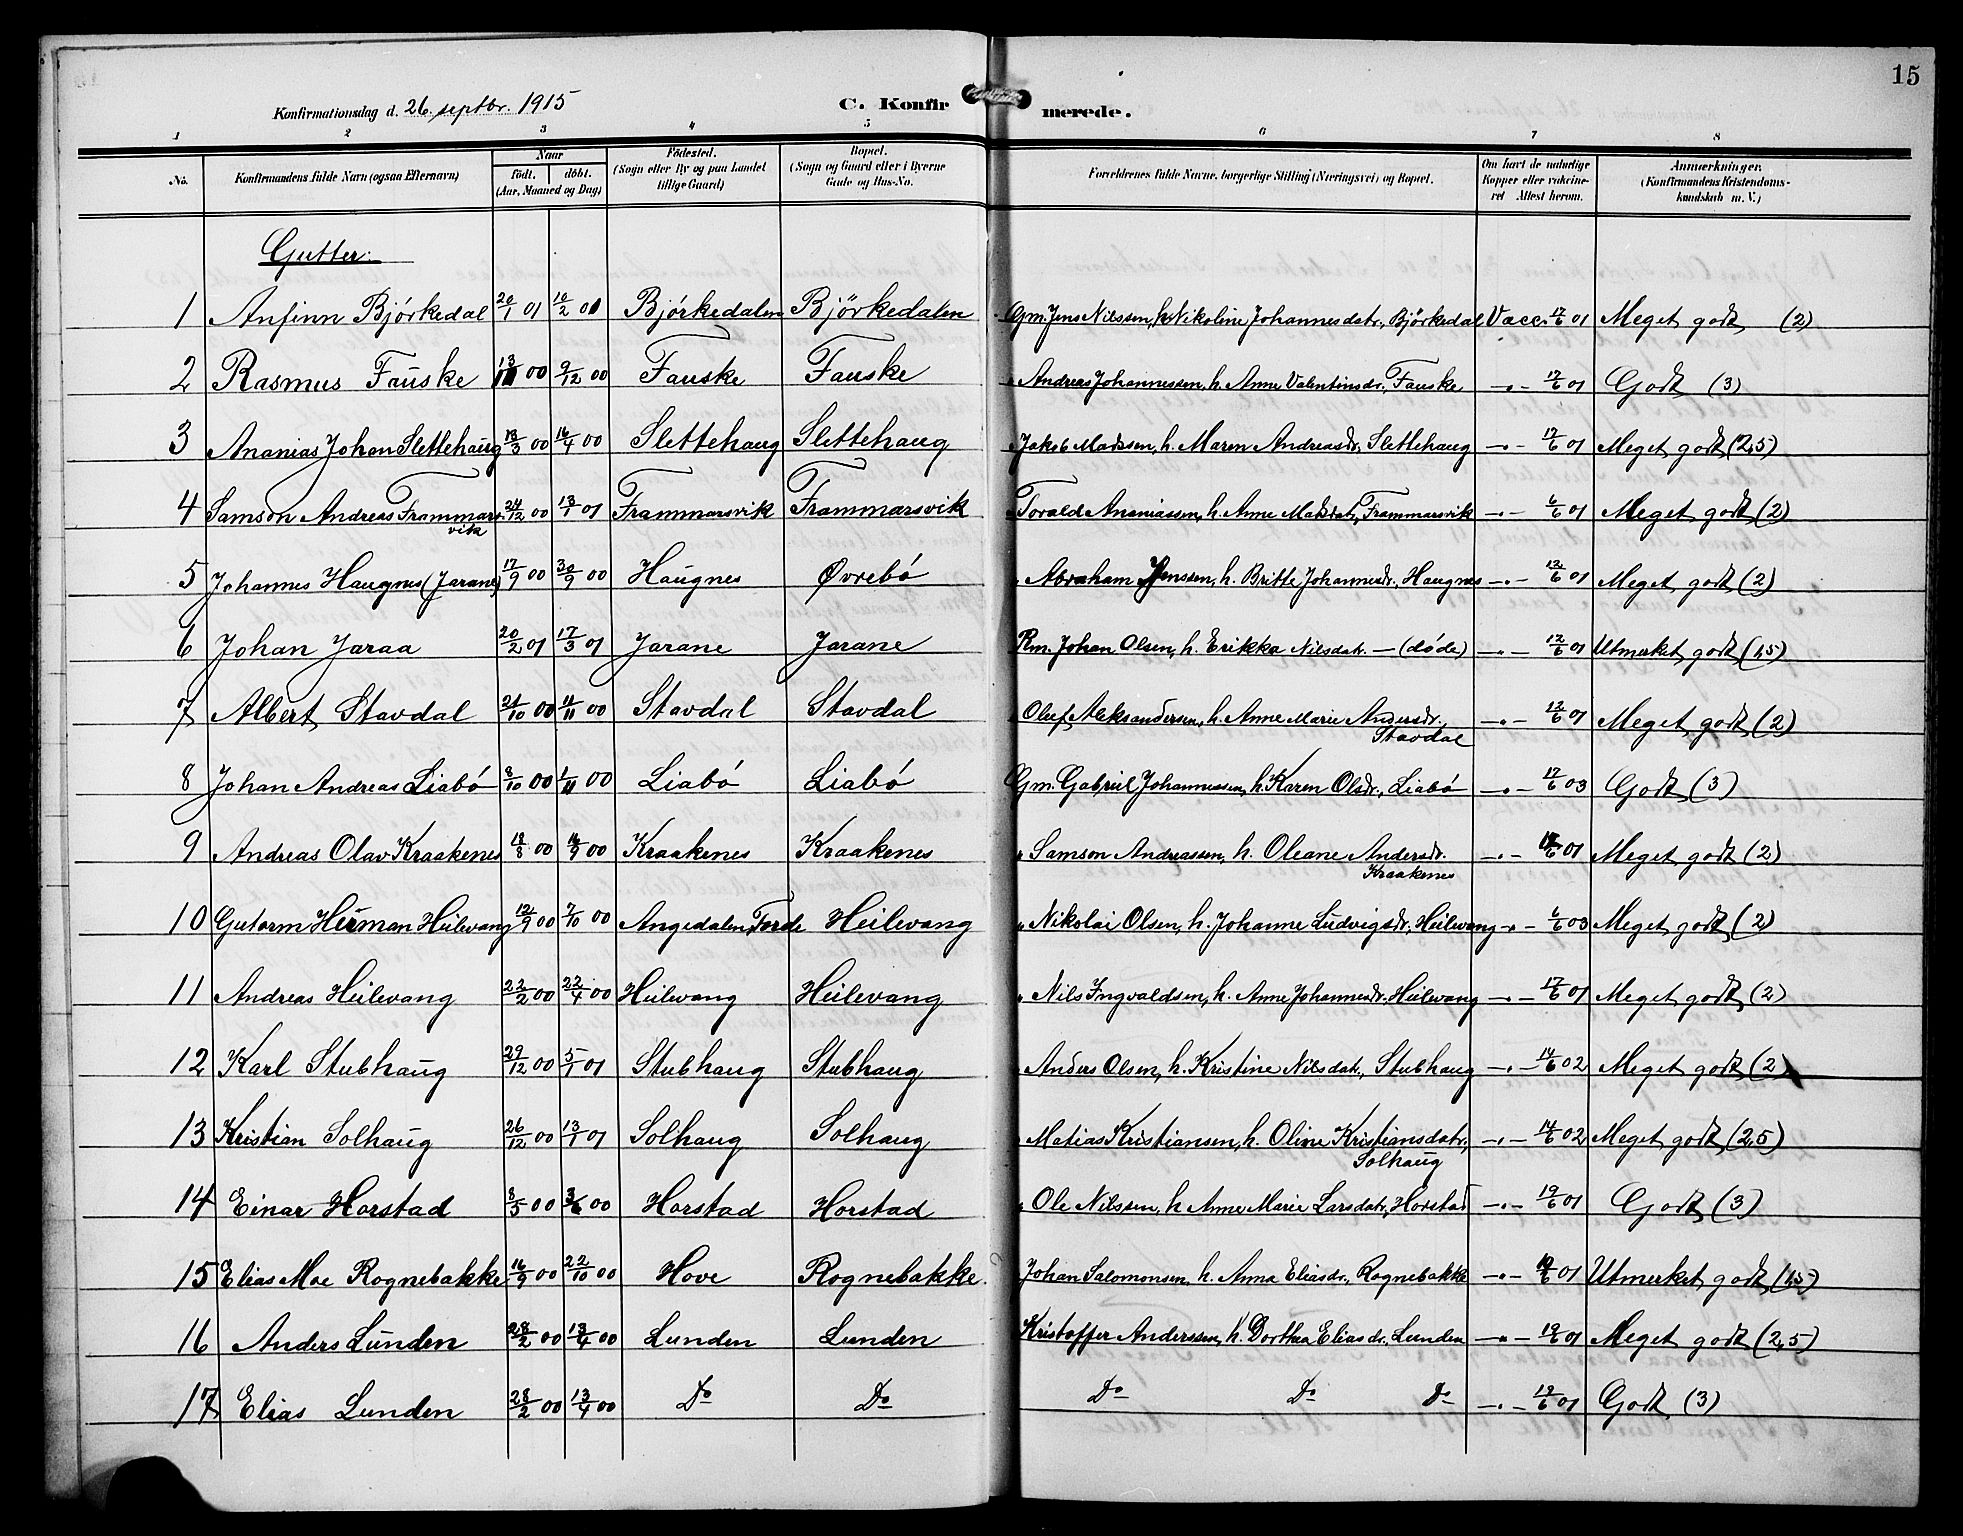 15
Konfirmationsdag d. 26. septbr. 1915 C. Konfirmerede.
1 2 3 4 5 6 7 8
No. Konfirmandens fulde Navn (ogsaa Efternavn) Naar født. døbt. (Aar, Maaned og Dag) Fødested. (Sogn eller By og paa Landet tillige Gaard) Bopæl. (Sogn og Gaard eller i Byerne Gade og Hus-No. Forældrenes fulde Navne, borgerlige Stilling (Næringsvei) og Bopæl. Om havt de naturlige Kopper eller vakcineret Attest herom. Anmærkninger. (Konfirmandens Kristendomskundskab m. V.)
Gutter:
1 Anfinn Bjørkedal 20/1 01 10/2 01 Bjørkedalen Bjørkedalen Gm. Jens Nilssen, h. Nikoline Johannesdatr., Bjørkedal Vacc. 12/6 01 Meget godt (2)
2 Rasmus Fauske 13/11 00 9/12 00 Fauske Fauske " Andreas Johannessen, h. Anne Valentinsdr., Fauske –"– 12/6 01 Godt (3)
3 Ananias Johan Slettehaug 18/3 00 16/4 00 Slettehaug Slettehaug " Jakob Madssen, h. Maren Andreasdr. Slettehaug –"– 12/6 01 Meget godt (2,5)
4 Samson Andreas Frammarsvik 24/12 00 13/1 01 Frammarsvik Frammarsvik " Torald Ananiassen, h. Anne Matsdatr., Frammarsvik –"– 6/6 01 Meget godt (2)
5 Johannes Haugnes (Jarane) 17/9 00 30/9 00 Haugnes Øvrebø " Abraham Jenssen, h. Britte Johannesdr., Haugnes –"– 12/6 01 Meget godt (2)
6 Johan Jaraa 20/2 01 17/3 01 Jarane Jarane Rm. Johan Olsen, h. Erikka Nilsdatr. – (døde) –"– 12/6 01 Utmerket godt (1,5)
7 Albert Stavdal 21/10 00 11/11 00 Stavdal Stavdal " Oluf Aleksandersen, h. Anne Marie Andersdr., Stavdal –"– 12/6 01 Meget godt (2)
8 Johan Andreas Liabø 8/10 00 1/11 00 Liabø Liabø Gm. Gabriel Johannessen, h. Karen Olsdr., Liabø –"– 12/6 03 Godt (3)
9 Andreas Olav Kraakenes 18/8 00 16/9 00 Kraakenes Kraakenes " Samson Andreassen, h. Oleane Andersdr. Kraakenes –"– 6/6 01 Meget godt (2)
10 Gutorm Herman Heilevang 12/9 00 7/10 00 Angedalen, Førde Heilevang " Nikolai Olsen, h. Johanne Ludvigsdr., Heilevang –"– 6/6 03 Meget godt (2)
11 Andreas Heilevang 22/2 00 22/4 00 Heilevang Heilevang " Nils Ingvaldsen, h. Anne Johannesdr., Heilevang –"– 12/6 01 Meget godt (2)
12 Karl Stubhaug 29/12 00 5/1 01 Stubhaug Stubhaug " Anders Olsen, h. Kristine Nilsdatr., Stubhaug –"– 14/6 02 Meget godt (2)
13 Kristian Solhaug 26/12 00 13/1 01 Solhaug Solhaug " Matias Kristiansen, h. Oline Kristiansdatr., Solhaug –"– 14/6 02 Meget godt (2,5)
14 Einar Horstad 8/5 00 3/6 00 Horstad Horstad " Ole Nilssen, h. Anne Marie Larsdatr., Horstad –"– 19/6 01 Godt (3)
15 Elias Moe Rognebakke 16/9 00 22/10 00 Hove Rognebakke Johan Salomonsen, h. Anna Eliasdr., Rognebakke –"– 19/6 01 Utmerket godt (1,5)
16 Anders Lunden 28/2 00 13/4 00 Lunden Lunden Kristoffer Anderssen, h. Dorthea Eliasdr., Lunden –"– 19/6 01 Meget godt (2,5)
17 Elias Lunden 28/2 00 13/4 00 Do Do Do Do Do –"– 19/6 01 Godt (3)